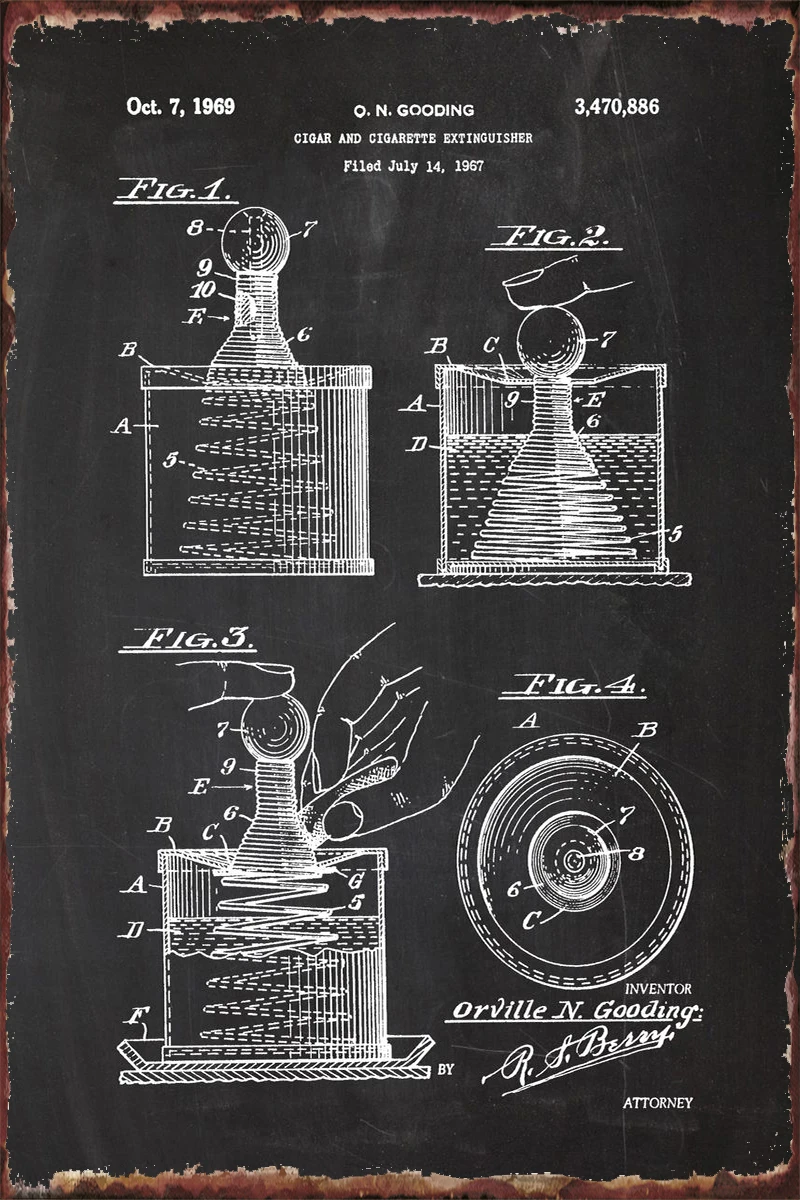 Oct. 7, 1969
O. N. GOODING
3,470,886
CIGAR AND CIGARETTE EXTINGUISHER
Filed July 14, 1967
FIG. 1.
8
7
9
10
E
6
B
A
5
FIG. 2.
7
B
C
A
9
E
6
D
5
FIG. 3.
7
9
E
6
B
C
G
A
5
D
F
FIG. 4.
A
B
7
8
6
C
INVENTOR
Orville N. Gooding:
BY
R. S. Berry
ATTORNEY